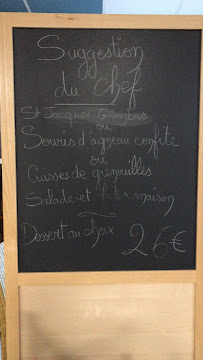 Suggestion
du chef
St Jacques
ou
Souris d'agneau confite
ou
Cuisses de grenouilles
Salade et frites maison
Dessert au choix 26€